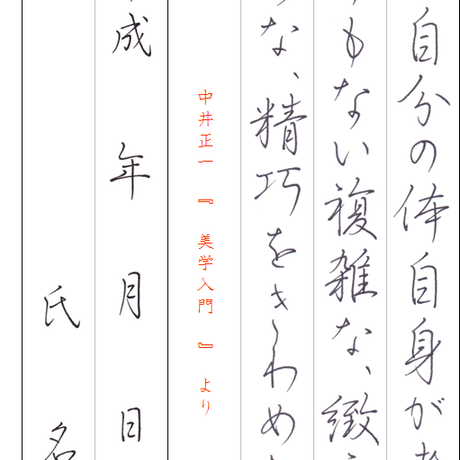 自分の体自身が
もない複雑な、緻
な、精巧をきわめ
中井正一『美学入門』より
成 年 月 日
氏 名